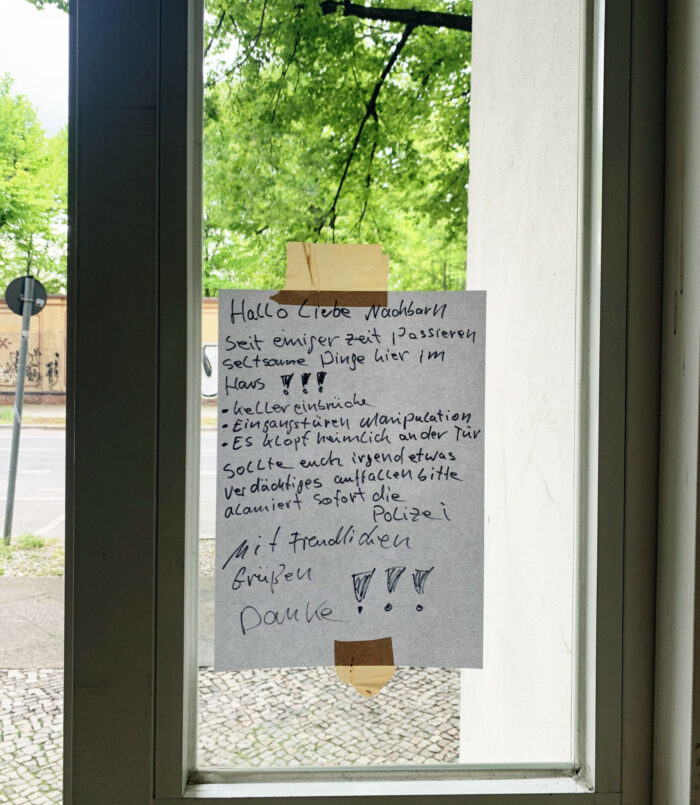 Hallo Liebe Nachbarn
Seit einiger Zeit passieren
seltsame Dinge hier im
Haus !!!
• Kellereinbrüche
• Eingangstüren Manipulation
• Es klopf heimlich an der Tür
Sollte euch irgendetwas
verdächtiges auffallen bitte
alamiert sofort die
Polizei
Mit Freudlichen
Grüßen
Danke !!!